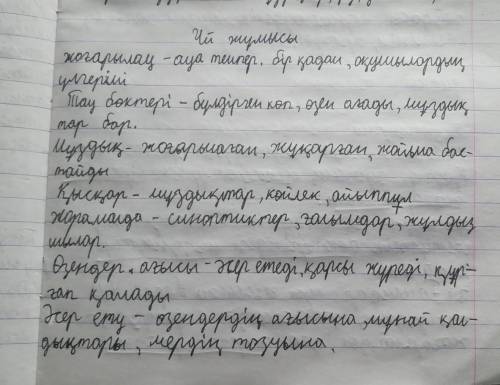 Үй жұмысы
жоғарылау - ауа темпер. бір қадам, оқушылардың
үлгерімі
Тау бөктері - бүлдірген көп, өзен ағады, мұздық
тар бар.
Мұздық - жоғарылаған, жұқарған, жайыла бас-
тайды
Қысқар - мұздықтар, көйлек, айыппұл
жорамалда - синоптиктер, ғалымдар, жұлдыз
шылар.
Өзендер. ағысы - әсер етеді, қарсы жүреді, құр-
ғап қалады
Әсер ету - өзендердің ағысына, мұнай қал
дықтары, жердің тозуына.